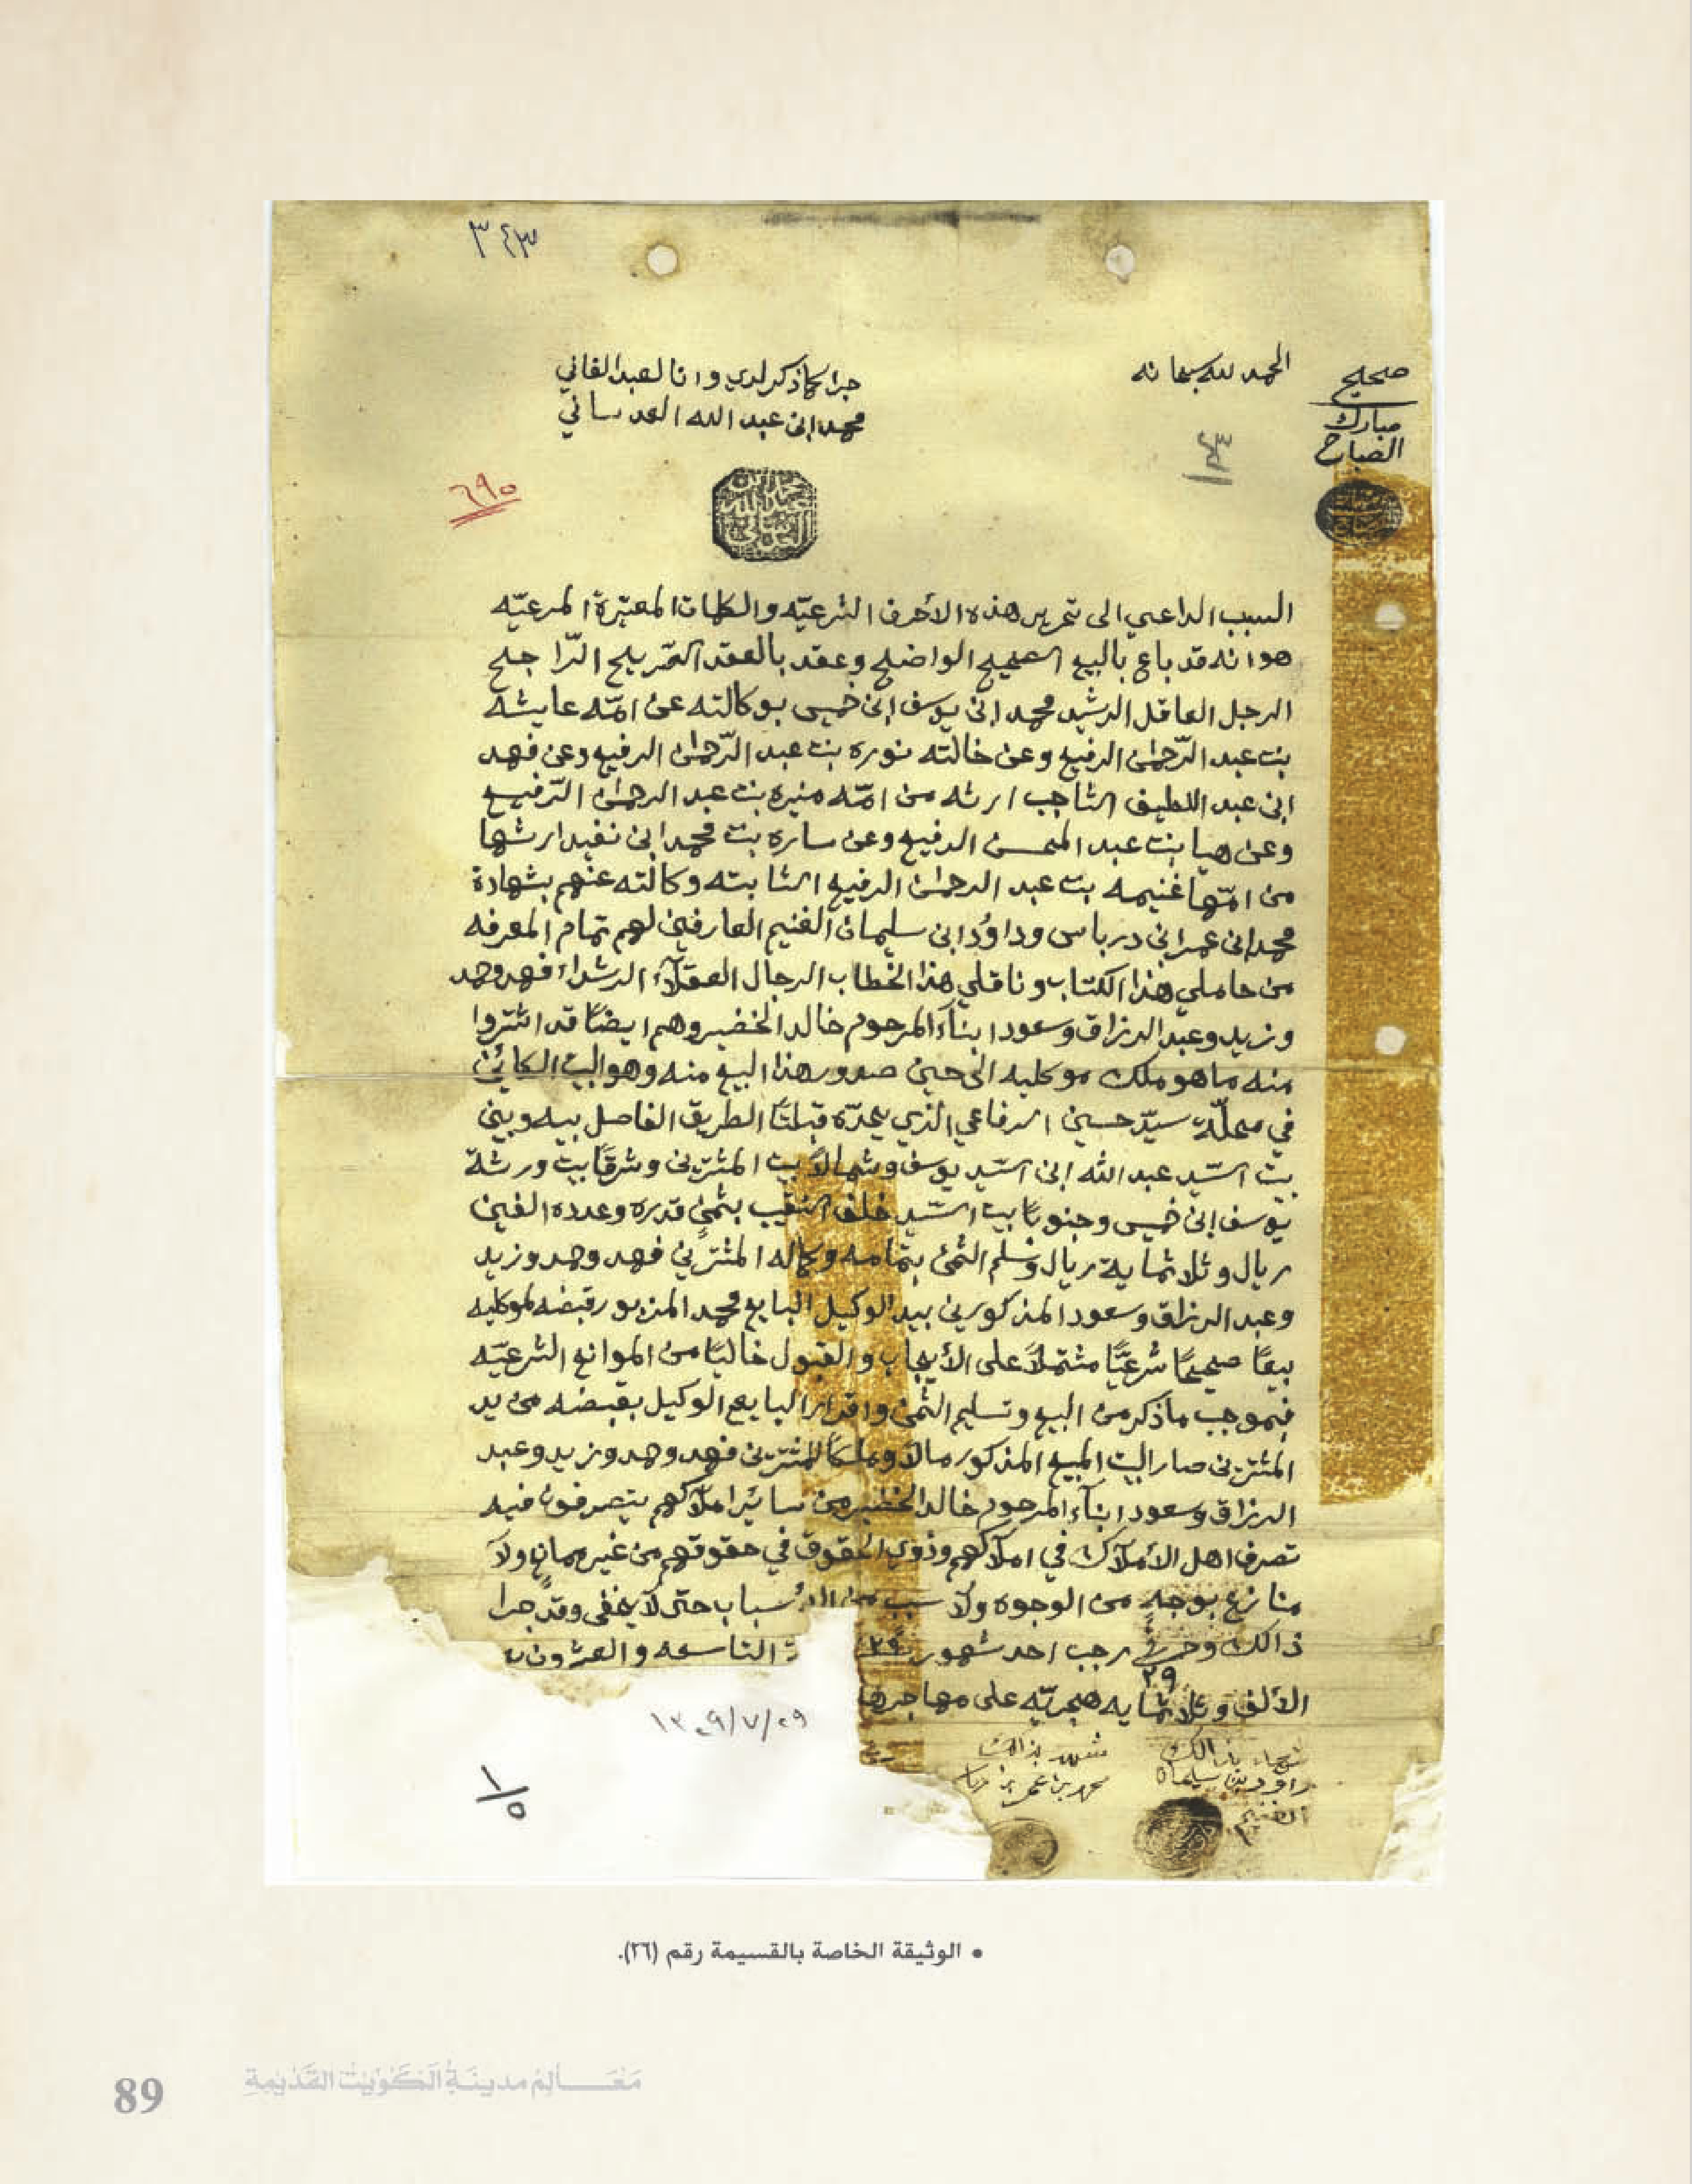 ٣٤٣
الحمد لله سبحانه
صحيح
مبارك
الصباح
جرا كما ذكر لدي وانا العبد الفاني
محمد ابن عبد الله العدساني
٤٣
٦٩٥
السبب الداعي الى تحرير هذه الأحرف الشرعيّه والكلمات المعتبرة المرعيّه
هو انه قد باع بالبيع الصحيح الواضح وعقد بالعقد الصّريح الرّاجح
الرجل العاقل الرشيد محمد ابن يوسف ابن خميس بوكالته عن امّه عايشه
بنت عبد الرّحمٰن الرفيع وعن خالته نوره بنت عبد الرّحمٰن الرفيع وعن فهد
ابن عبد اللطيف ارثه من امّه منيره بنت عبد الرحمٰن الرّفيع
وعن هيا بنت عبد المحسن الرفيع وعن ساره بنت محمد ابن ارثها
من امّها غنيمه بنت عبد الرحمٰن الرفيع الثابته وكالته عنهم بشهادة
محمد ابن عمر ابن درباس وداوُد ابن سليمان الغنيم العارفين لهم تمام المعرفه
من حاملي هذا الكتاب وناقلي هذا الخطاب الرجال العقلآء الرشداء فهد وحمد
وزيد وعبد الرزاق وسعود ابنآء المرحوم خالد الخضير وهم ايضًا قد اشتروا
منه ما هو ملك موكليه الى حين صدور هذا البيع منه وهو البيت الكائن
في محلّة سيّد حسين الرفاعي الذي يحدّه قبلتًا الطريق الفاصل بيه وبين
بيت السّيد عبد الله ابن السّيد يوسف وشمالاً بيت المشترين وشرقًا بيت ورثة
يوسف ابن خميس وجنوبًا بيت السّيد خلف النقيب بثمنٍ قدره وعدده الفين
ريال وثلاثماية ريال وسلم الثمن بتمامه وكماله المشترين فهد وحمد وزيد
وعبد الرزاق وسعود المذكورين بيد الوكيل البايع محمد المزبور وقبضه لموكليه
بيعًا صحيحًا شرعيًّا مشتملاً على الأيجاب والقبول خاليًا من الموانع الشرعيّه
فبموجب ما ذكر من البيع وتسليم الثمن واقرار البايع الوكيل بقبضه من يد
المشترين صار البيت المبيع المذكور مالاً وملكًا للمشترين فهد وحمد وزيد وعبد
الرزاق وسعود ابنآء المرحوم خالد الخضير من سائير املآكهم يتصرفون فيه
تصرف اهل الأملآك في املآكهم وذوي الحقوق في حقوقهم من غير ممانع ولآ
منازع بوجهٍ من الوجوه ولآ سبب من الأسباب حتى لآ يخفى وقد جرا
ذالك وحرر في ٢٩ رجب احد شهور التاسعه والعشرون
٢٩
الألف وثلاثمايه هجريّه على مهاجرها
١٣٢٩/٧/٢٩
شهد بذالك
داود بن سليمان
الغنيم
شهد بذالك
محمد بن عمر بن
١/٥
• الوثيقة الخاصة بالقسيمة رقم (٢٦).
مَعَالِمُ مدينَةِ الكُوَيْت القَدِيمَةِ
89